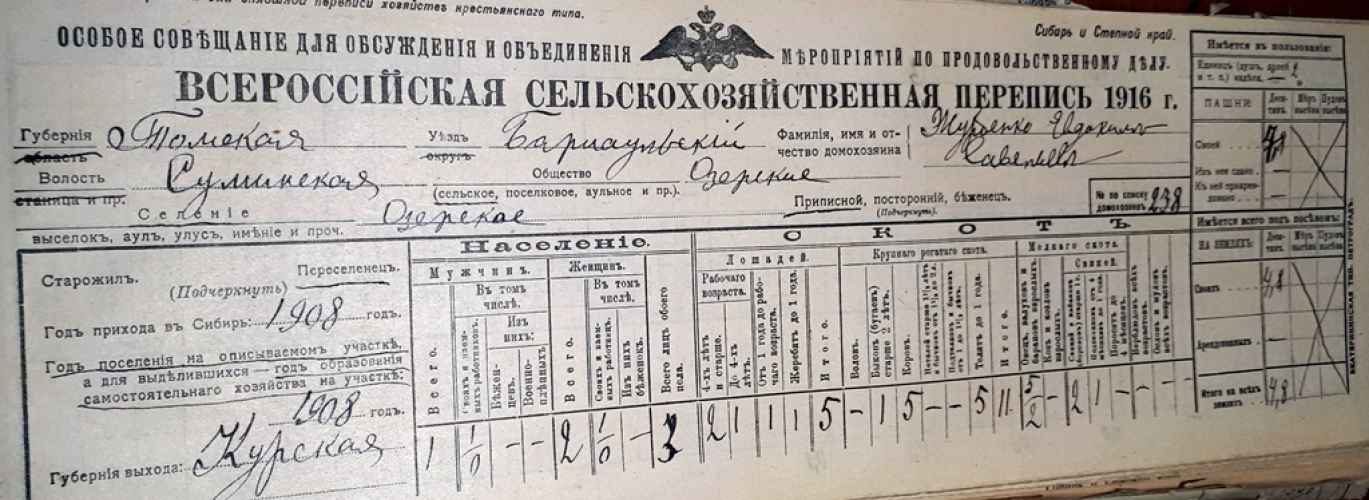 сплошной переписи хозяйств крестьянского типа.
Сибирь и Степной край.
ОСОБОЕ СОВѢЩАНІЕ ДЛЯ ОБСУЖДЕНІЯ И ОБЪЕДИНЕНІЯ МѢРОПРІЯТІЙ ПО ПРОДОВОЛЬСТВЕННОМУ ДѢЛУ.
ВСЕРОССІЙСКАЯ СЕЛЬСКОХОЗЯЙСТВЕННАЯ ПЕРЕПИСЬ 1916 г.
Губернія Томская Уѣздъ Барнаульскій Фамилія, имя и от-
область округъ чество домохозяина
Волость Сузунская Общество Озерское
станица и пр. (сельское, поселковое, аульное и пр.).
Приписной, посторонній, бѣженец.
(Подчеркнуть).
№ по списку домохозяевъ 238
Селеніе Озерское
выселокъ, аулъ, улусъ, имѣніе и проч.
Старожилъ. Переселенецъ.
(Подчеркнуть)
Годъ прихода въ Сибирь: 1908 годъ.
Годъ поселенія на описываемомъ участкѣ,
а для выдѣлившихся — годъ образованія
самостоятельнаго хозяйства на участкѣ:
1908 годъ.
Губернія выхода: Курская
Населеніе.
Мужчинъ. Женщинъ.
Всего.
Въ томъ числѣ.
Своихъ и наем-
ныхъ работниковъ.
Изъ нихъ:
Бѣжен-
цевъ.
Военно-
плѣнныхъ.
Всего.
Въ томъ числѣ.
Своихъ и наем-
ныхъ работниц.
Изъ нихъ
бѣженокъ.
Всего лицъ обоего
пола.
СКОТЪ
Лошадей.
Рабочаго
возраста.
4-хъ лѣтъ
и старше.
До 4-хъ
лѣтъ.
Отъ 1 года до рабо-
чаго возраста.
Жеребятъ до 1 года.
Итого.
Крупнаго рогатаго скота.
Воловъ.
Быковъ (бугаевъ)
старше 2 лѣтъ.
Коровъ.
Телятъ до 1 года.
Итого.
Мелкаго скота.
Свиней.
1 1/0 – – 2 1/0 – 3 2 1 1 1 5 – 1 5 – – 5 11 5/2 – 2 1 – – –
Имѣется въ пользованіи:
Единицъ (душъ, долей
и т. п.) надѣла, — 2
ПАШНИ:
Деся-
тинъ.
Мѣръ
высѣва.
Пудовъ
высѣва.
Своей
Имѣется всего подъ посѣвомъ:
НА ЗЕМЛЯХЪ:
Деся-
тинъ.
Мѣръ
высѣва.
Пудовъ
высѣва.
Своихъ 4,8
Арендованныхъ
Итого на всѣхъ
земляхъ 4,8
ЕКАТЕРИНИНСКАЯ ТИП. ПЕТРОГРАДЪ.